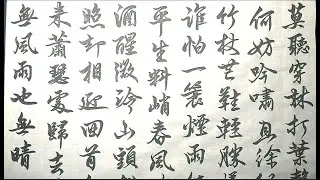 莫聽穿林打葉聲
何妨吟嘯且徐行
竹杖芒鞋輕勝
誰怕一蓑煙雨
平生料峭春風
酒醒微冷山頭
照却相迎回首
来蕭瑟處歸去
無風雨也無晴